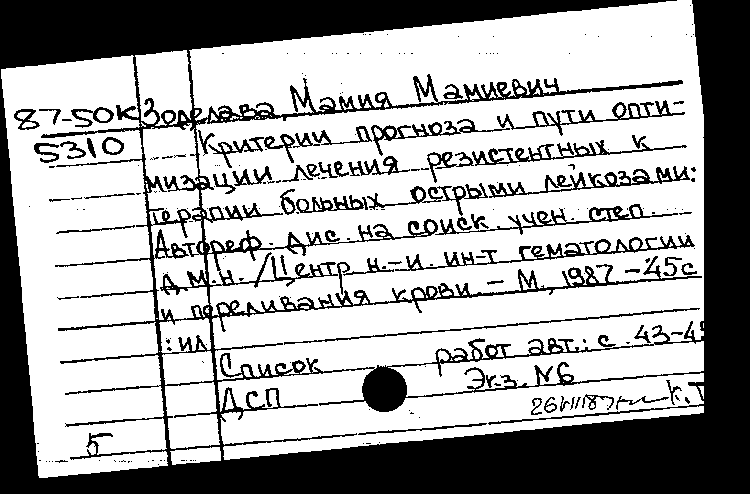 87-50К Зоделава, Мамия Мамиевич
5310 Критерии прогноза и пути опти-
мизации лечения резистентных к
терапии больных острыми лейкозами:
Автореф. дис. на соиск. учен. степ.
д.м.н. /Центр н.-и. ин-т гематологии
и переливания крови. – М., 1987 – 45с
: ил
Список работ авт.: с. 43-45
ДСП Экз. №6
К.Т
5